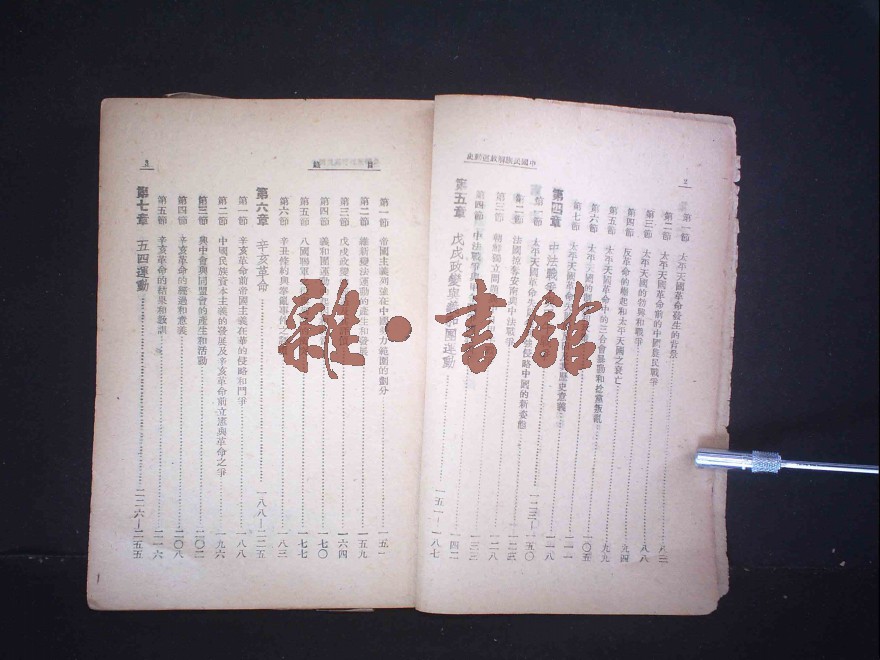 中國民族解放運動史
2
第一節 太平天國革命發生的背景 八三
第二節 太平天國革命前的中國農民戰爭 八八
第三節 太平天國的勃興和戰爭 九四
第四節 反革命的崛起和太平天國之衰亡 九九
第五節 太平天國革命中的三合會暴動和捻黨叛亂 一〇五
第六節 太平天國 一一一
第七節 太平天國革命 歷史意義 一一八
第四章 中法戰爭 一二三—一五〇
第一節 太平天國革命 侵略中國的新姿態 一二三
第二節 法國掠奪安南與中法戰爭 一二八
第三節 朝鮮獨立問題 一三三
第四節 中法戰爭與甲 一四二
第五章 戊戌政變與義和團運動 一五一—一八七
目 錄
3
第一節 帝國主義列強在中國勢力範圍的劃分 一五一
第二節 維新變法運動的產生和發展 一五九
第三節 戊戌政變 一六四
第四節 義和團運動的 一七〇
第五節 八國聯軍
第六節 辛丑條約與拳亂事件之 一八三
第六章 辛亥革命 一八八—二二五
第一節 辛亥革命前帝國主義在華的侵略和鬥爭 一八八
第二節 中國民族資本主義的發展及辛亥革命前立憲與革命之爭 一九六
第三節 興中會與同盟會的產生和活動 二〇二
第四節 辛亥革命的經過和意義 二〇八
第五節 辛亥革命的結果和教訓 二一六
第七章 五四運動 二二六—二五五
雜·書館